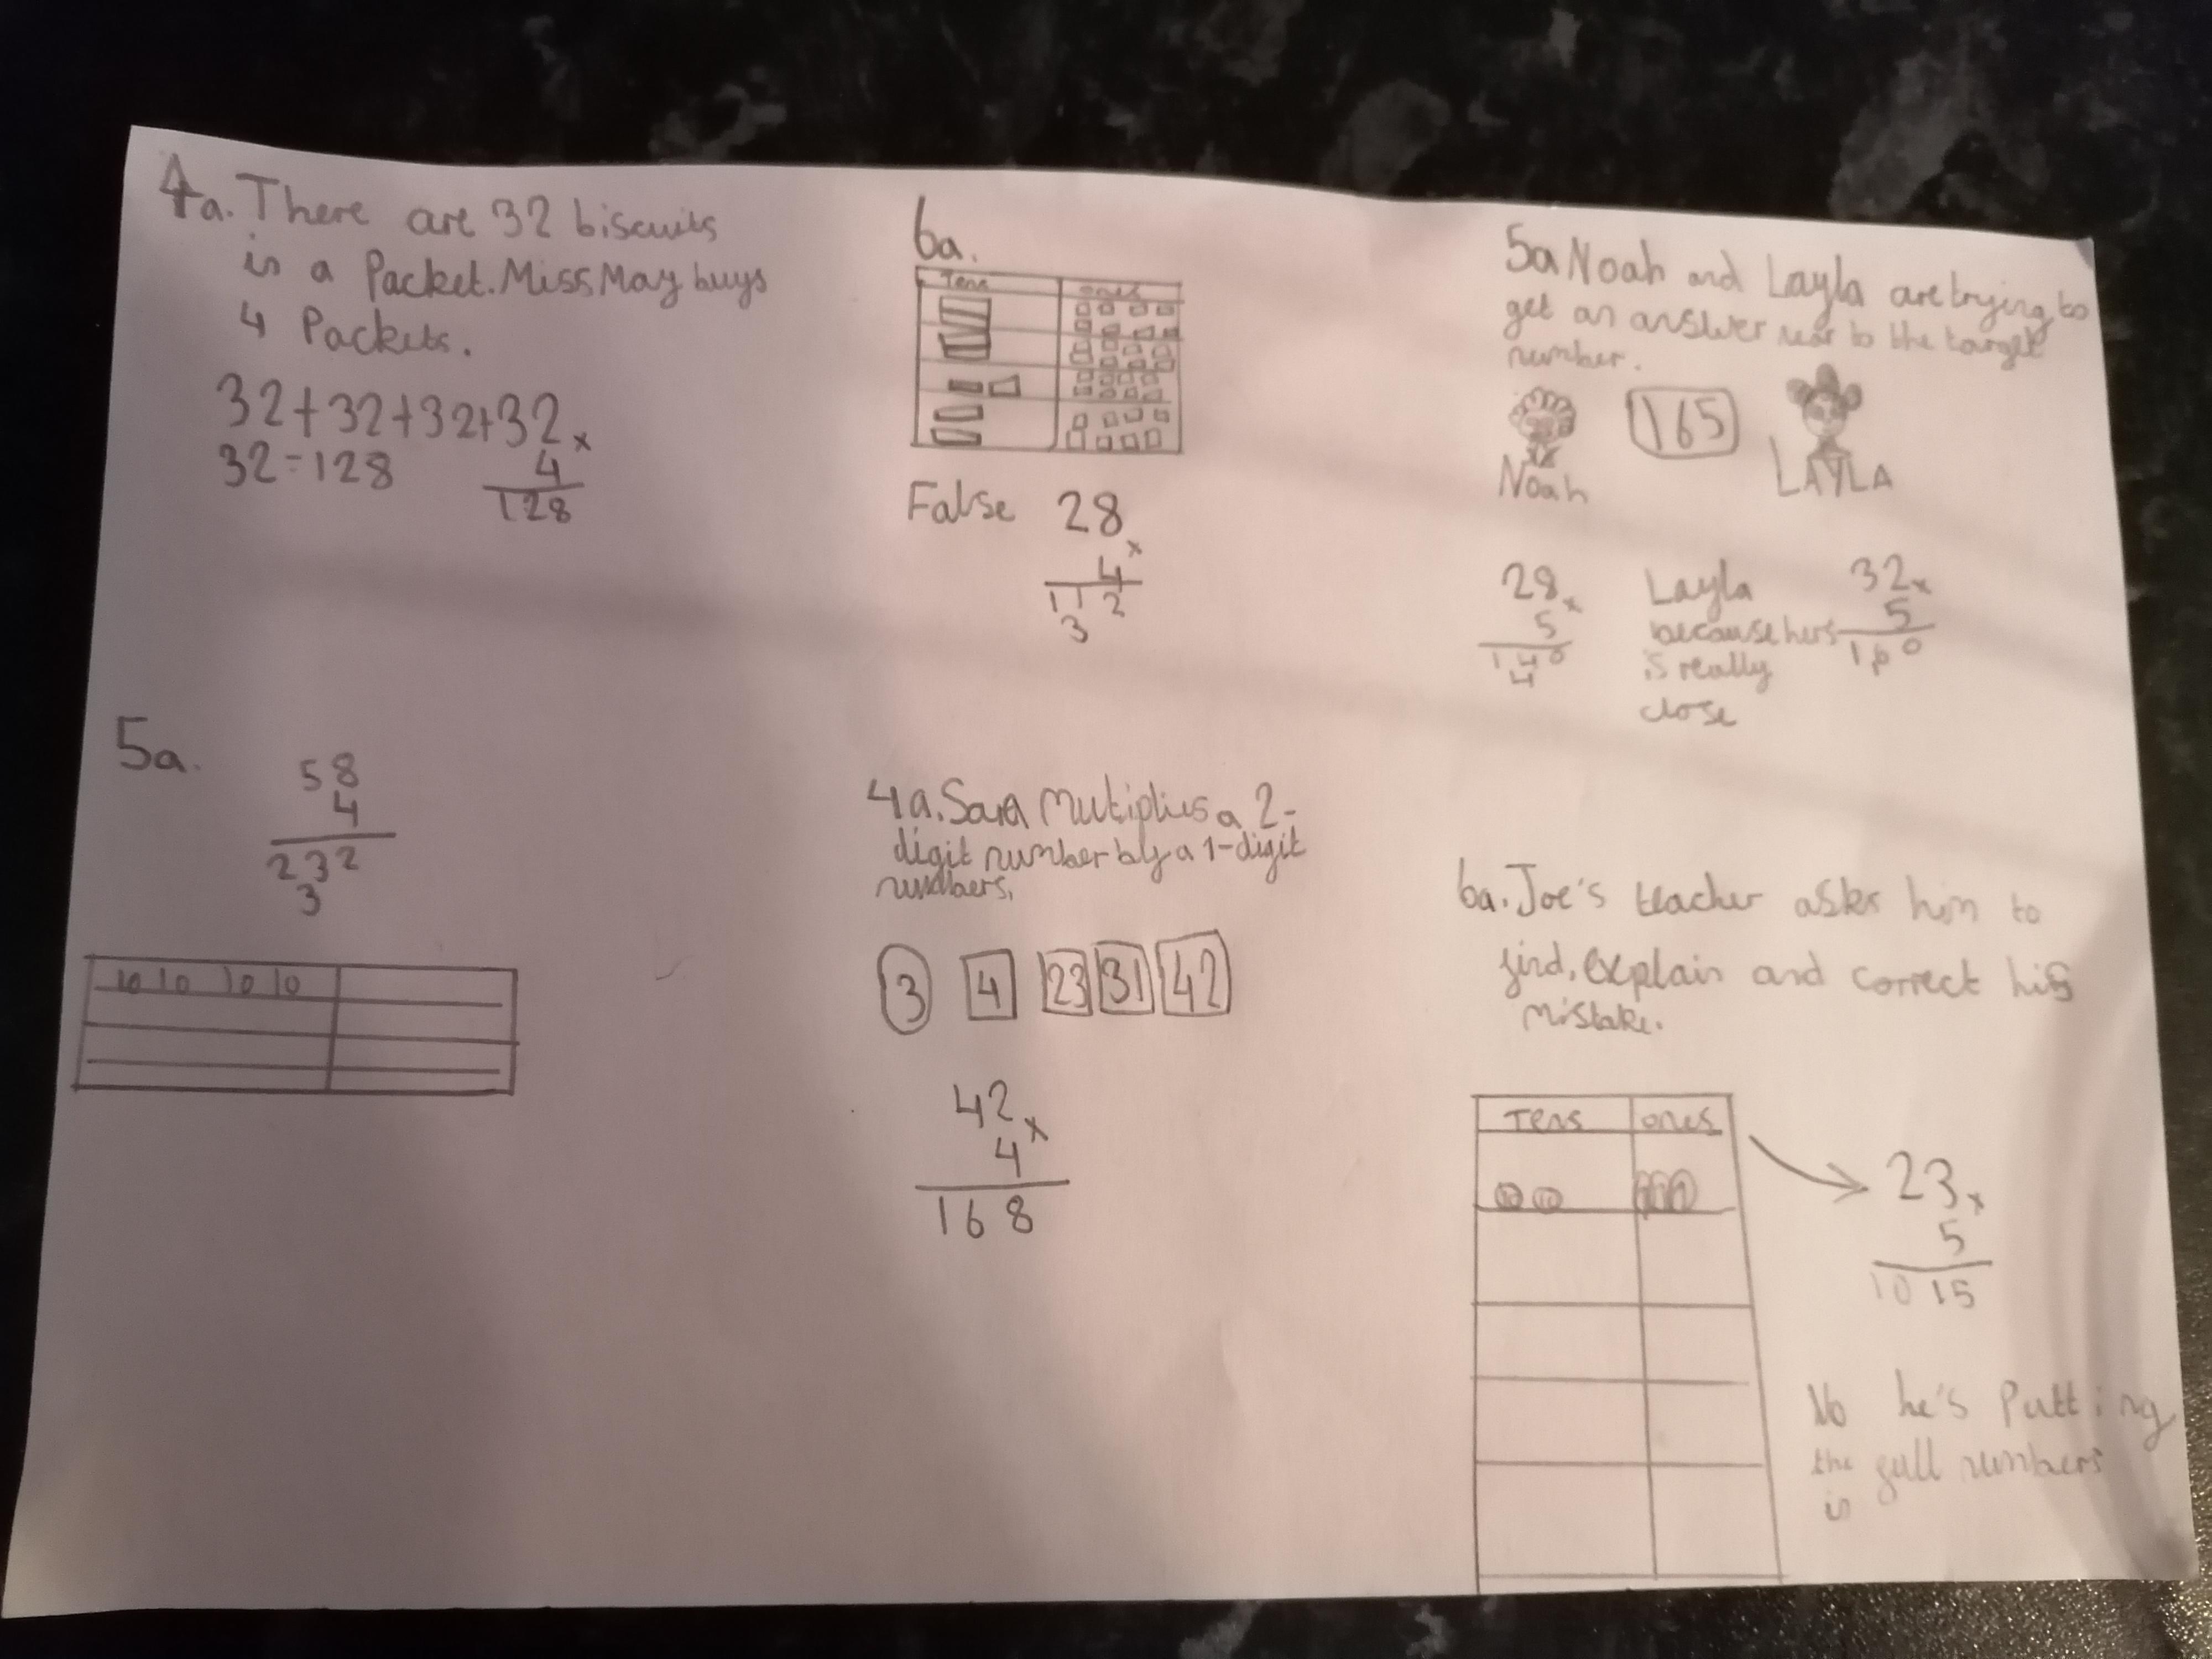 4a. There are 32 biscuits
in a Packet. Miss May buys
4 Packets.
32+32+32+32 x
32=128 4
128
6a.
Tens ones
False 28 x
4
112
3
5a Noah and Layla are trying to
get an answer near to the target
number.
165
Noah LAYLA
28 x
5
140
4
Layla
because hers
is really
close
32 x
5
160
1
5a.
58
4
232
3
10 10 10 10
4a. Sara multiplies a 2-
digit number by a 1-digit
numbers.
3 4 23 31 42
42 x
4
168
6a. Joe's teacher asks him to
find, explain and correct his
mistake.
Tens ones
10 10 1 1 1
23 x
5
10 15
No he's Putting
the full numbers
in